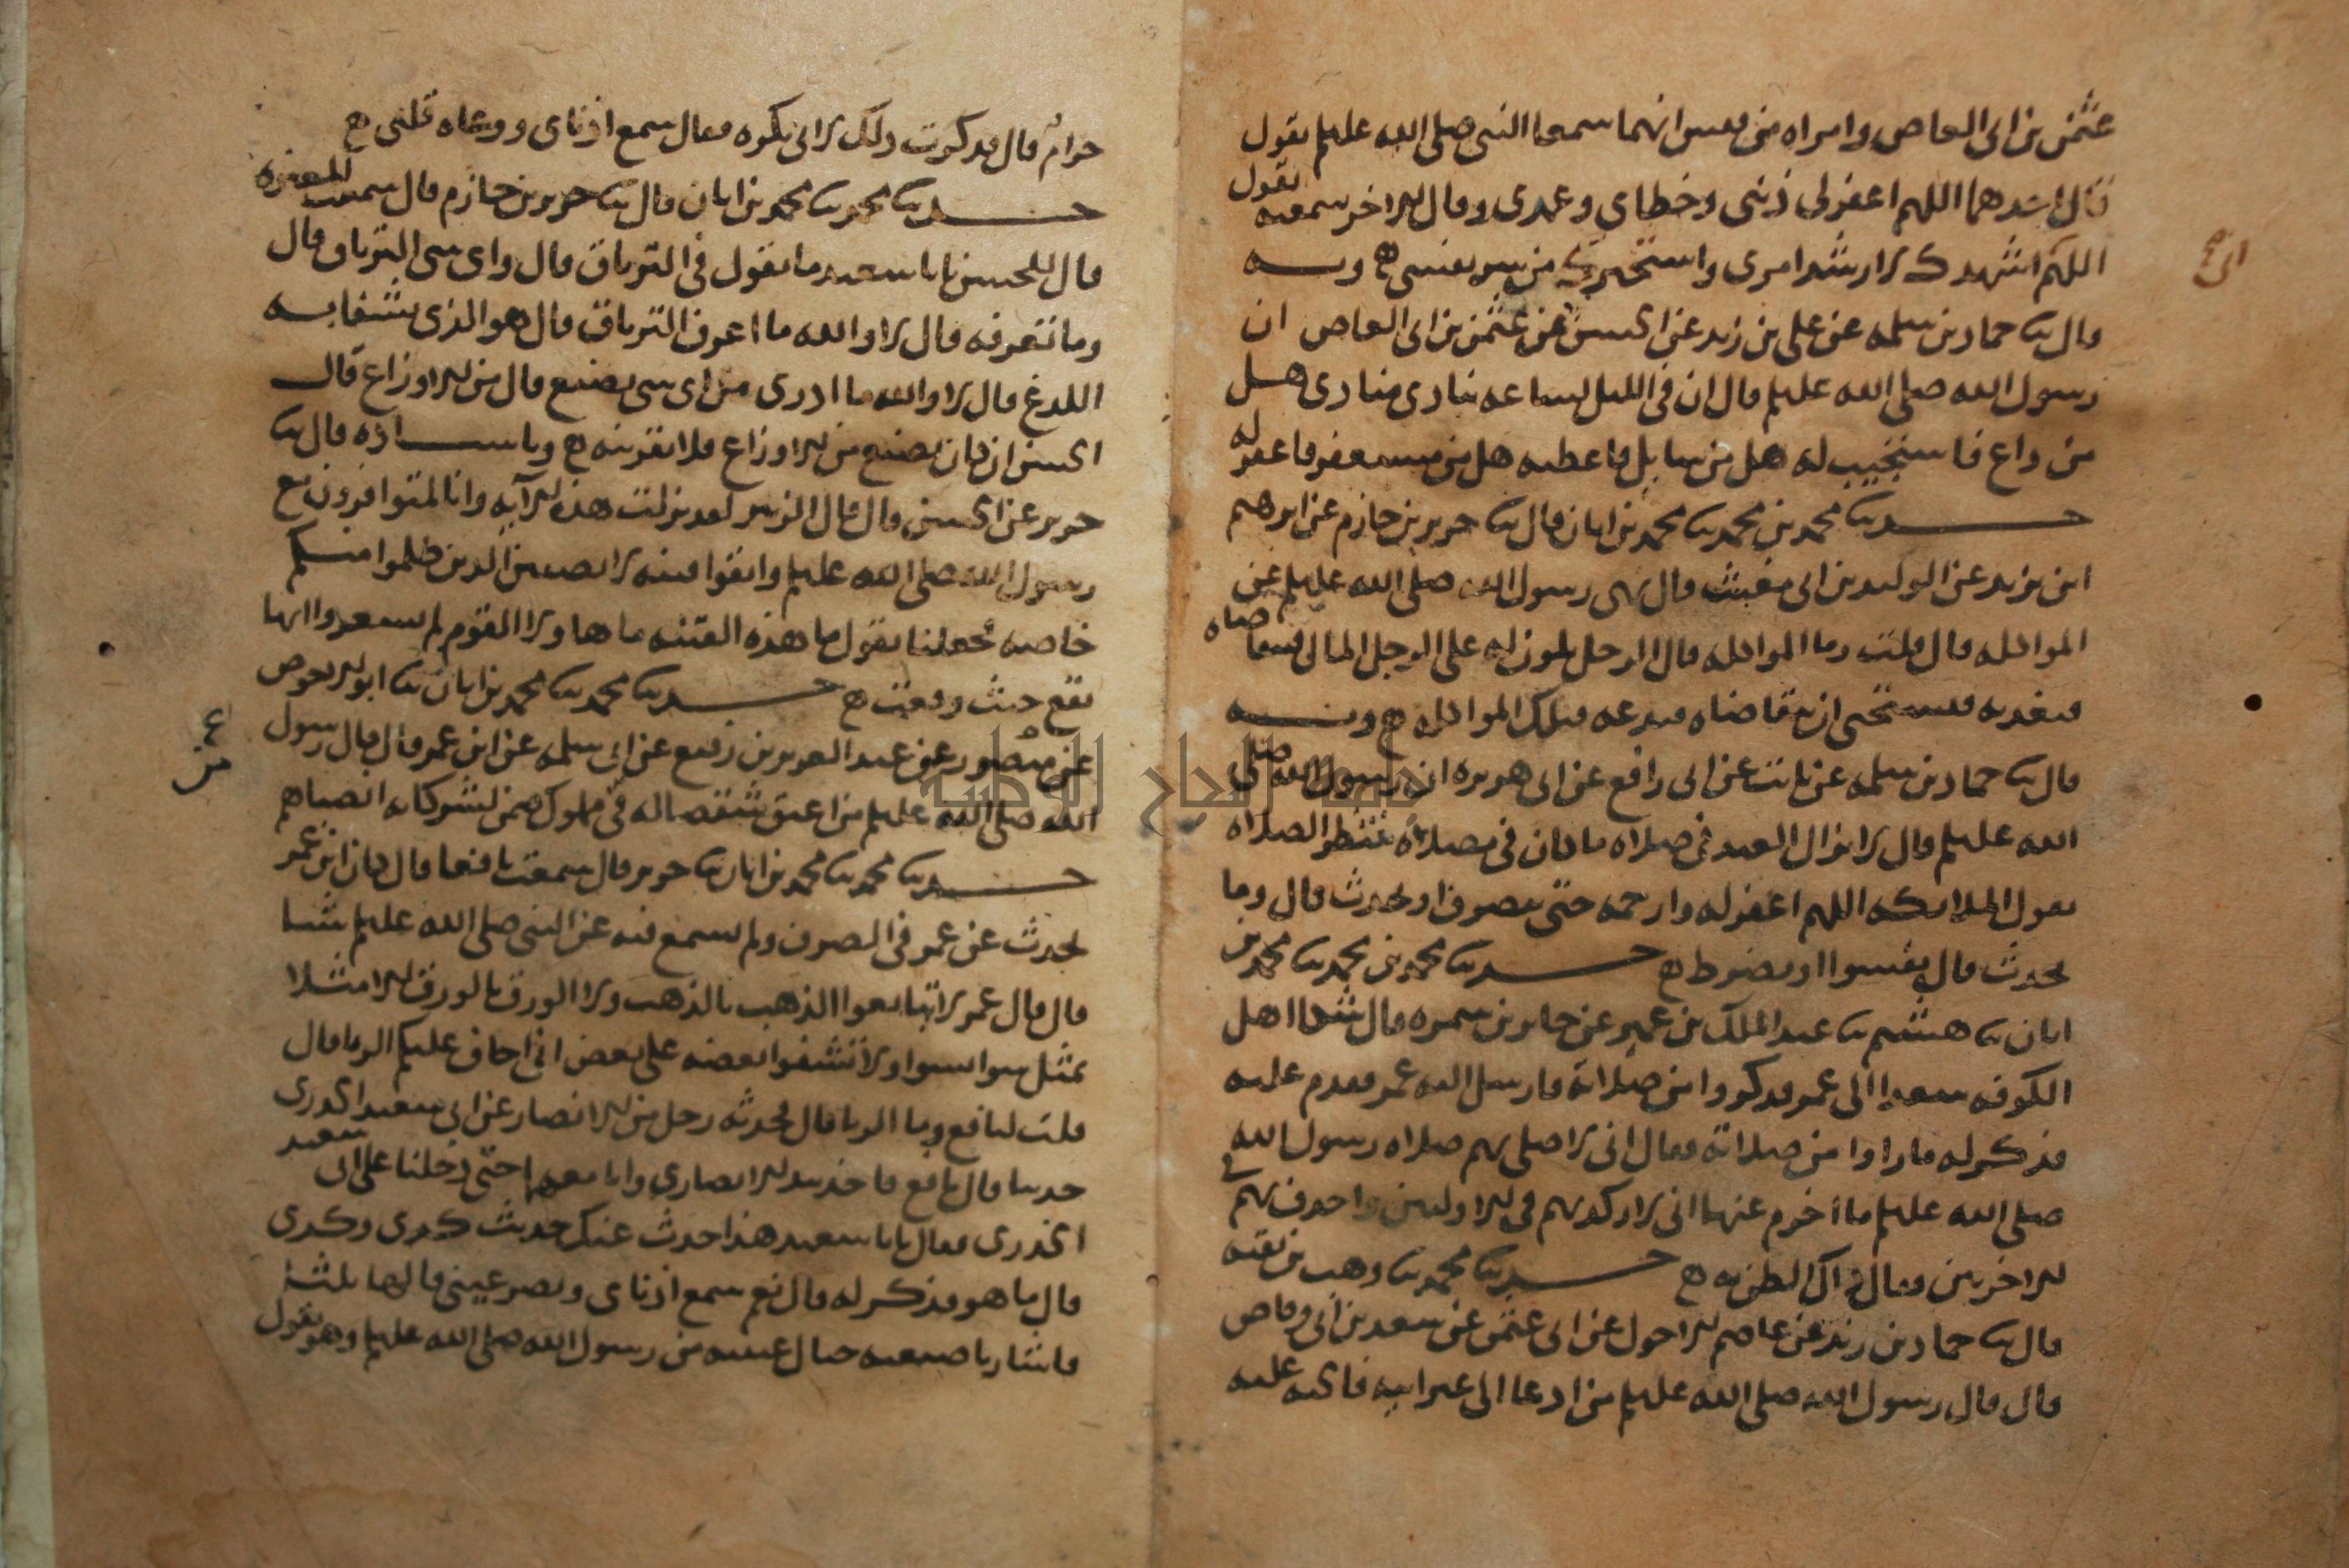 عثمن بن ابى العاص وامراه من قيس انهما سمعا النبى صلى الله عليه يقول
قال احدهما اللهم اغفر لى ذنبى وخطاى وعمدى وقال الاخر سمعته يقول
اللهم استهديك لارشد امرى واستجيرك من شر نفسى وبه
قال ثنا حماد بن سلمه عن على بن زيد عن الحسن عن عثمن بن ابى العاص ان
رسول الله صلى الله عليه قال ان فى الليل لساعه ينادى منادى هل
من داع فاستجيب له هل من سايل فاعطيه هل من مستغفر فاغفر له
حدثنا محمد بن محمد ثنا محمد بن ابان قال ثنا جرير بن حازم عن ابرهيم
ابن يزيد عن الوليد بن ابى مغيث قال نهى رسول الله صلى الله عليه عن
المواكله قال قلت وما المواكله قال الرجل يكون له على الرجل المال فيتقاضاه
فيغديه فيستحى ان يتقاضاه فيدعه فتلك المواكله وبه
قال ثنا حماد بن سلمه عن ثابت عن ابى رافع عن ابى هريره ان رسول الله صلى
الله عليه قال لا يزال العبد فى صلاه ما كان فى مصلاه ينتظر الصلاه
تقول الملايكه اللهم اغفر له وارحمه حتى ينصرف او يحدث قال وما
يحدث قال يفسوا او يضرط حدثنا محمد بن محمد ثنا محمد بن
ابان ثنا هشيم ثنا عبد الملك بن عمير عن جابر بن سمره قال شكا اهل
الكوفه سعدا الى عمر فذكروا من صلاته فارسل اليه عمر فقدم عليه
فذكر له ما راوا من صلاته فقال انى لاصلى بهم صلاه رسول الله
صلى الله عليه ما اخرم عنها انى لاركد بهم فى الاوليين واحذف بهم فى
الاخريين فقال ذاك الظن به حدثنا محمد ثنا وهب بن بقيه
قال ثنا حماد بن زيد عن عاصم الاحول عن ابى عثمن عن سعد بن ابى وقاص
قال قال رسول الله صلى الله عليه من ادعا الى غير ابيه فالجنه عليه
حرام قال فذكرت ذلك لابى بكره فقال سمع اذناى ووعاه قلبى
حدثنا محمد ثنا محمد بن ابان قال ثنا جرير بن حازم قال سمعت المغيره
قال للحسن يابا سعيد ما تقول فى الترياق قال واى شى الترياق قال
وما تعرفه قال لا والله ما اعرف الترياق قال هو الذى يشفا به
اللدغ قال لا والله ما ادرى من اى شى يصنع قال من الاوزاغ قال
الحسن ان كان يصنع من الاوزاغ فلا تقربنه وباسناده قال ثنا
جرير عن الحسن قال قال الزبير لقد نزلت هذه الايه وانا لمتوافرون مع
رسول الله صلى الله عليه واتقوا فتنه لا تصيبن الذين ظلموا منكم
خاصه فجعلنا نقول ما هذه الفتنه ما هاولا القوم لم يشعروا انها
تقع حيث وقعت حدثنا محمد ثنا محمد بن ابان ثنا ابو الاحوص
عن منصور عن عبد العزيز بن رفيع عن ابى سلمه عن ابن عمر قال قال رسول
الله صلى الله عليه من اعتق شقصا له فى مملوك ضمن لشركايه انصباهم
حدثنا محمد ثنا محمد بن ابان ثنا جرير قال سمعت نافعا قال كان ابن عمر
يحدث عن عمر فى الصرف ولم يسمع فيه عن النبى صلى الله عليه شيا
قال قال عمر لا تبايعوا الذهب بالذهب ولا الورق بالورق الا مثلا
بمثل سوا بسوا ولا تشفوا بعضه على بعض انى اخاف عليكم الربا قال
قلت لنافع وما الربا قال فحدثه رجل من الانصار عن ابى سعيد الخدرى
حديثا قال نافع فاخذ بيد الانصارى وانا معهما حتى دخلنا على ابى سعيد
الخدرى فقال يابا سعيد هذا حدث عنك حديث كدى وكدى
قال ما هو فذكر له قال نعم سمع اذناى وبصر عينى قالها ثلثا
فاشار باصبعيه حيال عينيه من رسول الله صلى الله عليه وهو يقول
جامعة النجاح الوطنية